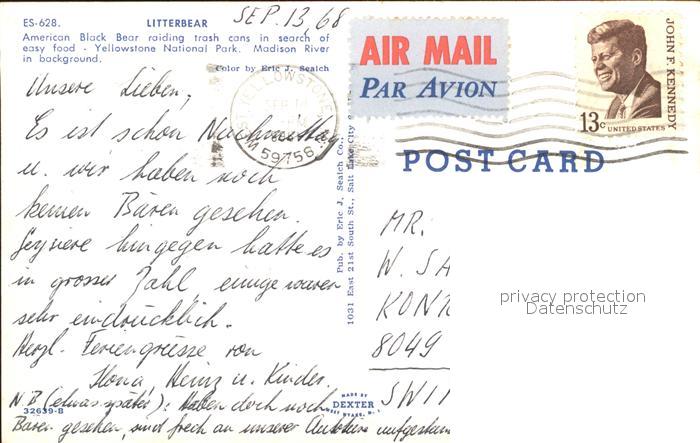 ES-628. LITTERBEAR
American Black Bear raiding trash cans in search of
easy food - Yellowstone National Park. Madison River
in background.
Color by Eric J. Seaich
SEP. 13, 68
Unsere Lieben,
Es ist schon Nachmittag
u. wir haben noch
keinen Bären gesehen.
Geysiere hingegen hatte es
in grosser Zahl einige waren
sehr eindrücklich.
Herzl. Feriengrüsse von
Ilona, Heinz u. Kinder.
N.B (etwas später): Haben doch noch
Bären gesehen, sind frech an unserer Autotüre aufgestan
32639-B
Pub. by Eric J. Seaich Co.,
1031 East 21st South St., Salt Lake City
MADE BY
DEXTER
WEST NYACK, N.Y.
YELLOWSTONE
SEP
59758
AIR MAIL
PAR AVION
JOHN F. KENNEDY
13c UNITED STATES
POST CARD
MR.
W. SA
KON
8049
SWI
privacy protection
Datenschutz